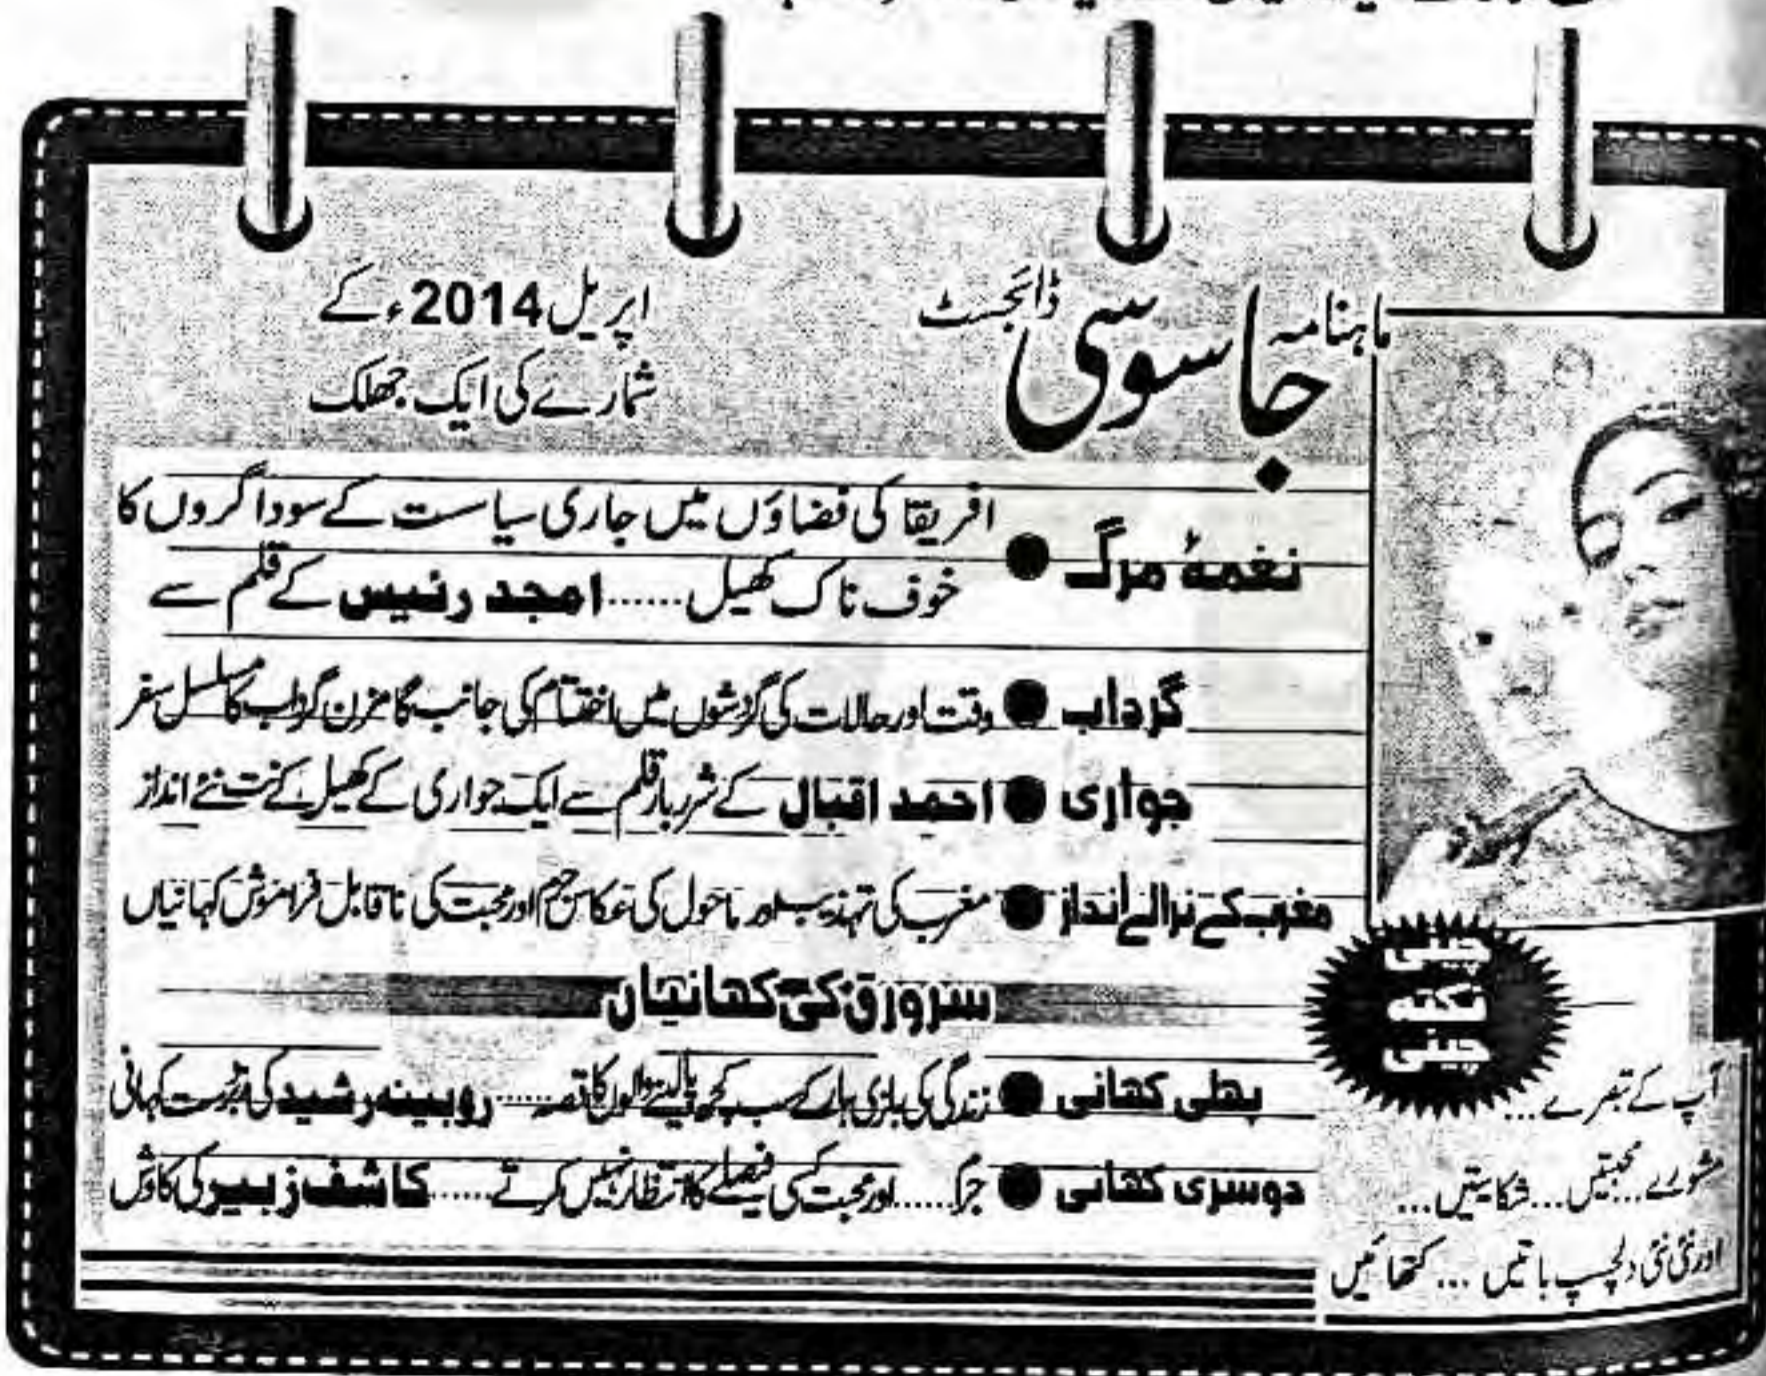 ماہنامہ جاسوسی ڈائجسٹ
اپریل 2014ء کے
شمارے کی ایک جھلک
نغمۂ مرگ ● افریقا کی فضاؤں میں جاری سیاست کے سوداگروں کا
خوف ناک کھیل...... امجد رئیس کے قلم سے
گرداب ● وقت اور حالات کی گردشوں میں اختتام کی جانب گامزن گرداب کا مسلسل سفر
جواری ● احمد اقبال کے شرر بار قلم سے ایک جواری کے کھیل کے نت نئے انداز
مغرب کے نرالے انداز ● مغرب کی تہذیب اور ماحول کی عکاس جرم اور محبت کی ناقابل فراموش کہانیاں
سرورق کی کہانیاں
پہلی کہانی ● زندگی کی بازی ہار کے سب کچھ پالینے والوں کا قصہ...... روبینہ رشید کی کہانی
دوسری کہانی ● جرگہ...... اور محبت کسی فیصلے کا انتظار نہیں کرتے...... کاشف زبیر کی کاوش
چینی
نکتہ
چینی
آپ کے تبصرے...
مشورے... محبتیں... شکایتیں...
اور نئی نئی دلچسپ باتیں ... کتھائیں